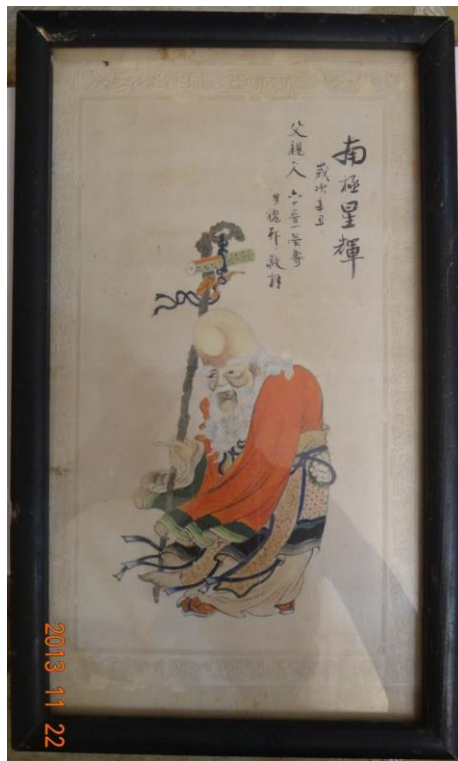 南極星輝
歲次辛丑
父親大人 六十晉一榮壽
男 敬
2013 11 22